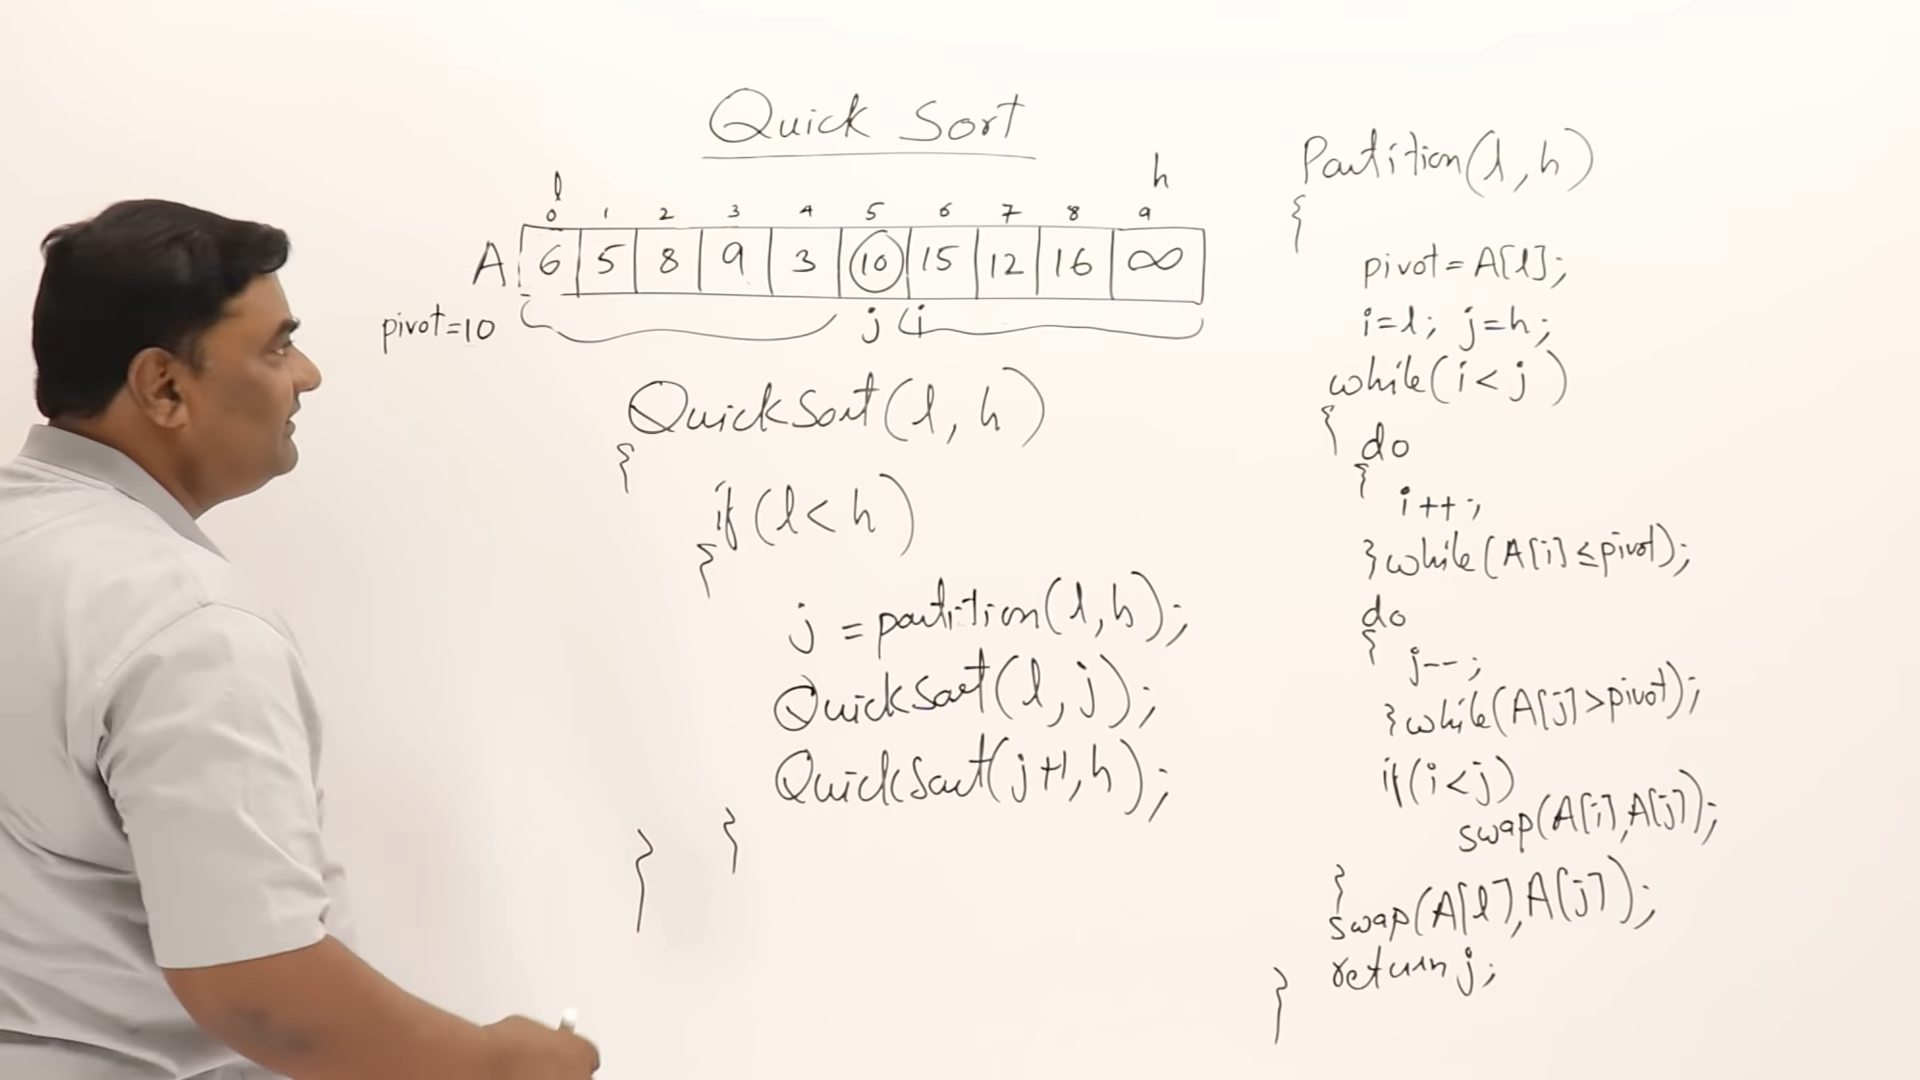 Quick Sort
l h
0 1 2 3 4 5 6 7 8 9
A 6 5 8 9 3 10 15 12 16 ∞
pivot=10 j i
QuickSort(l, h)
{
if(l<h)
{
j = partition(l,h);
QuickSort(l, j);
QuickSort(j+1, h);
}
}
Partition(l, h)
{
pivot=A[l];
i=l; j=h;
while(i<j)
{ do
{
i++;
}while(A[i]≤pivot);
do
{
j--;
}while(A[j]>pivot);
if(i<j)
swap(A[i],A[j]);
}
swap(A[l],A[j]);
return j;
}